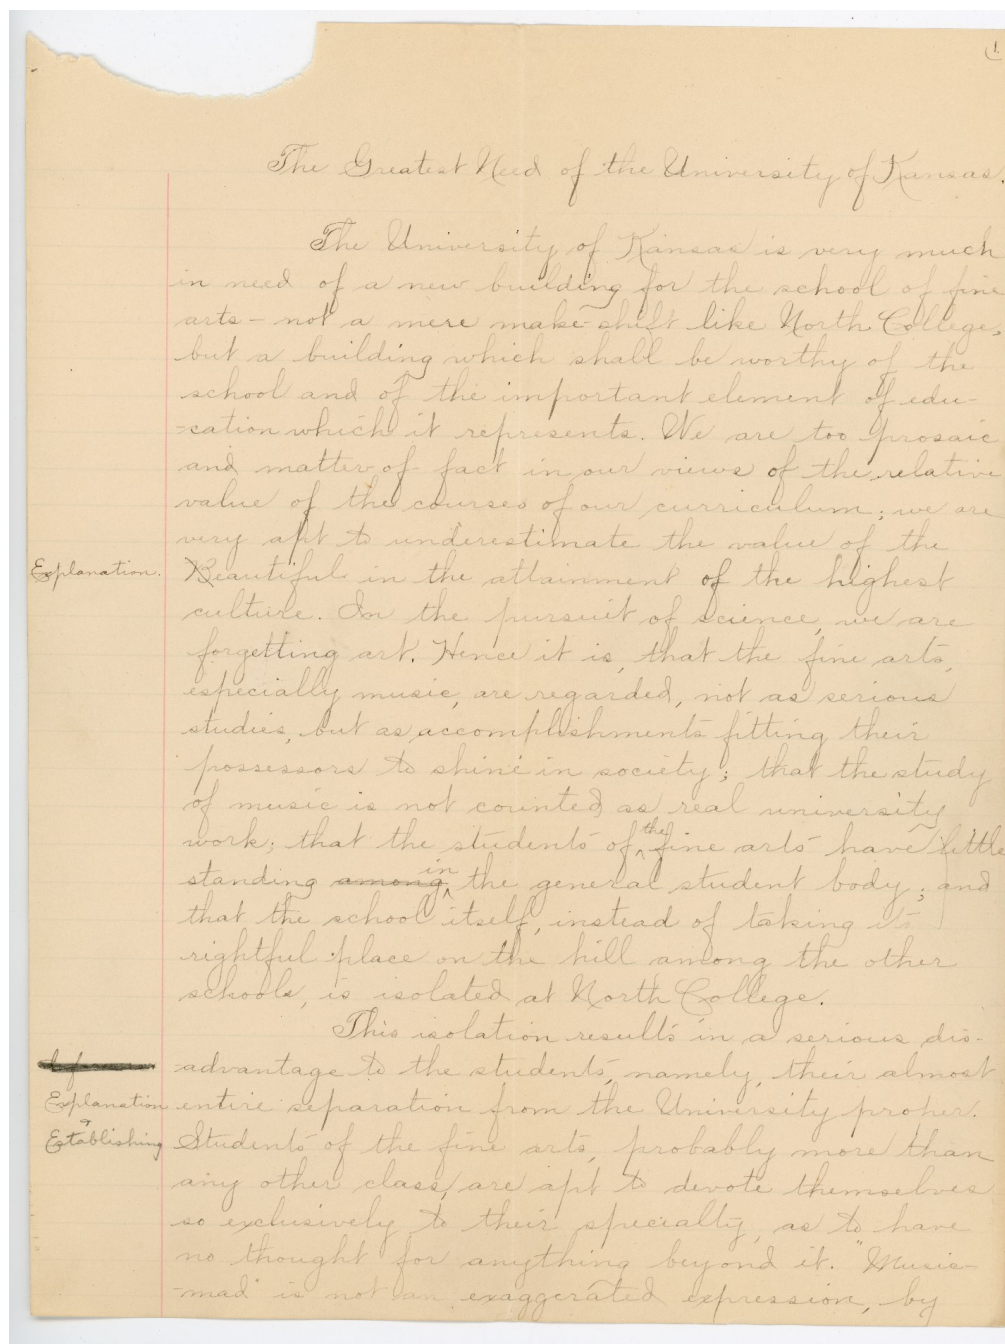 (1.
The Greatest Need of the University of Kansas.
The University of Kansas is very much
in need of a new building for the school of fine
arts - not a mere make-shift like North College,
but a building which shall be worthy of the
school and of the important element of edu-
-cation which it represents. We are too prosaic
and matter-of-fact in our views of the relative
value of the courses of our curriculum; we are
very apt to underestimate the value of the
Explanation. Beautiful in the attainment of the highest
culture. In the pursuit of science, we are
forgetting art. Hence it is, that the fine arts,
especially music, are regarded, not as serious
studies, but as accomplishments fitting their
possessors to shine in society; that the study
of music is not counted as real university
work; that the students of the fine arts have little
standing among in the general student body; and
that the school itself, instead of taking its
rightful place on the hill among the other
schools, is isolated at North College.
This isolation results in a serious dis-
advantage to the students, namely, their almost
Explanation entire separation from the University proper.
Establishing Students of the fine arts, probably more than
any other class, are apt to devote themselves
so exclusively to their specialty, as to have
no thought for anything beyond it. "Music-
-mad" is not an exaggerated expression, by